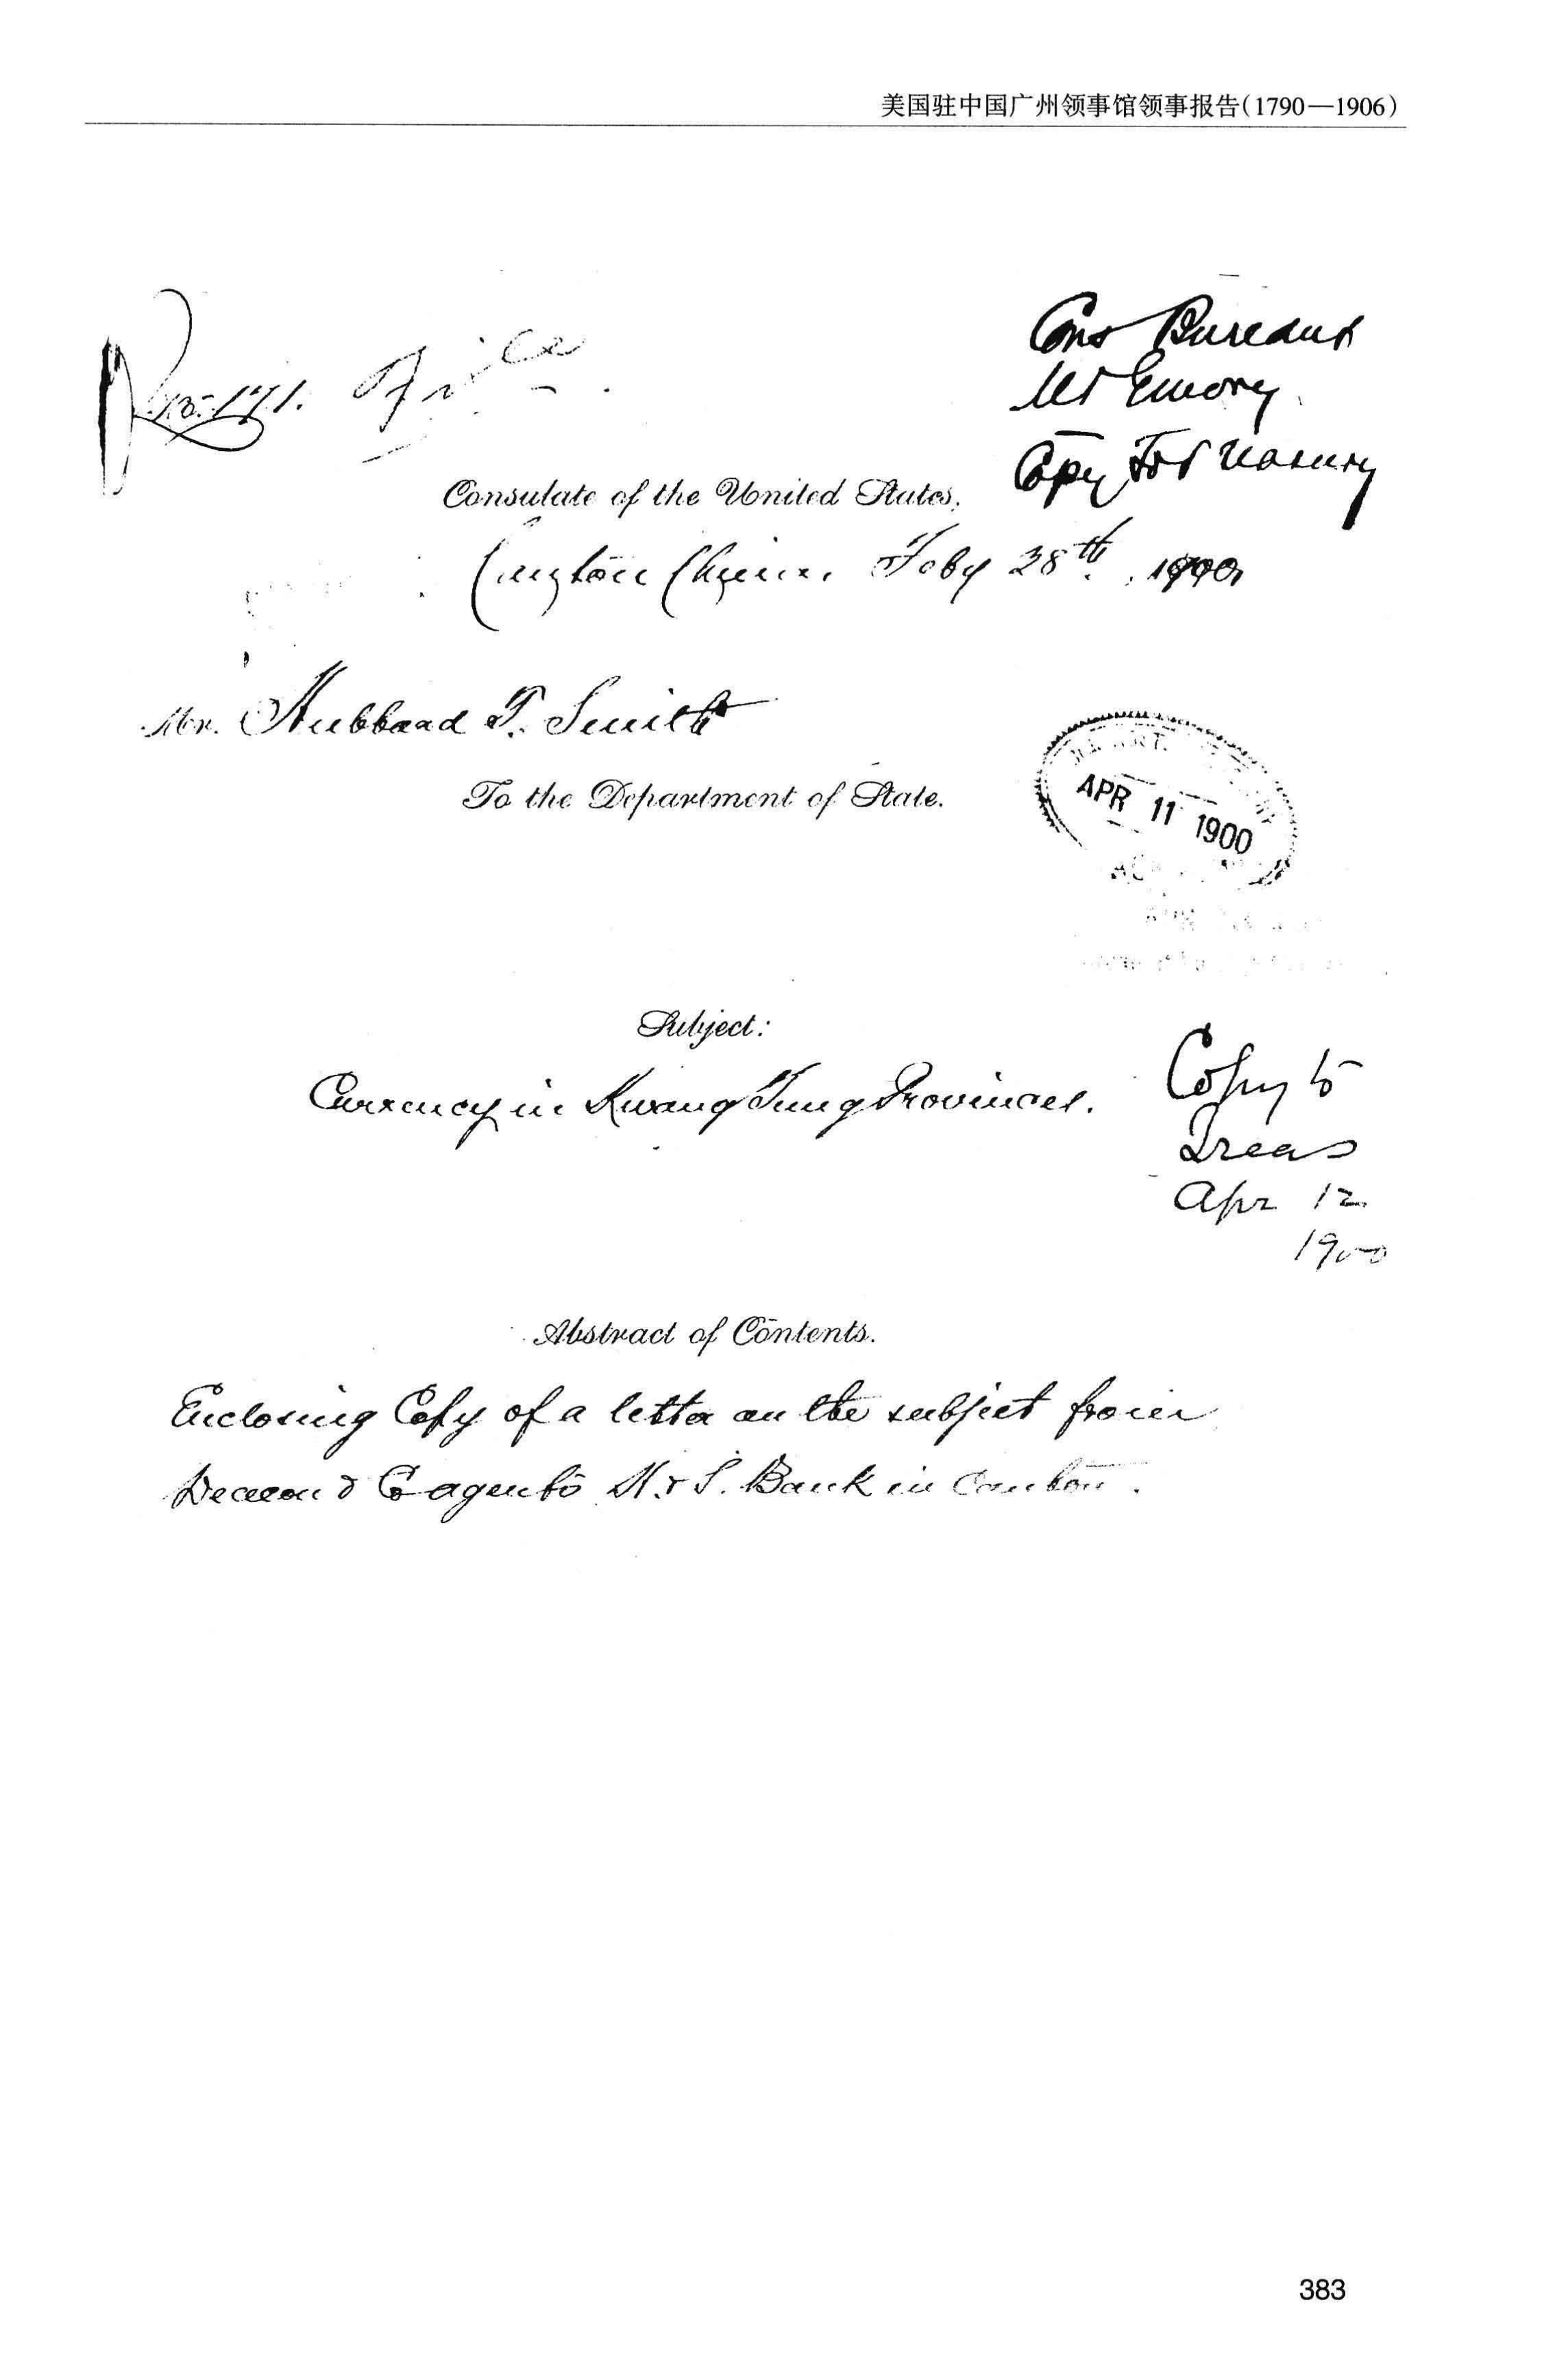 美国驻中国广州领事馆领事报告(1790—1906)
Cons Bureau
Mr Emory
Copy For Treasury
No. 171. File
Consulate of the United States,
Canton China. Feby 28th. 1900
Mr. Hubbard T. Smith
To the Department of State.
APR 11 1900
Subject:
Currency in Kwang Tung Provinces.
Copy to
Treas
Apr 12
1900
Abstract of Contents.
Enclosing Copy of a letter on the subject from
Deacon & Co agents H. & S. Bank in Canton.
383